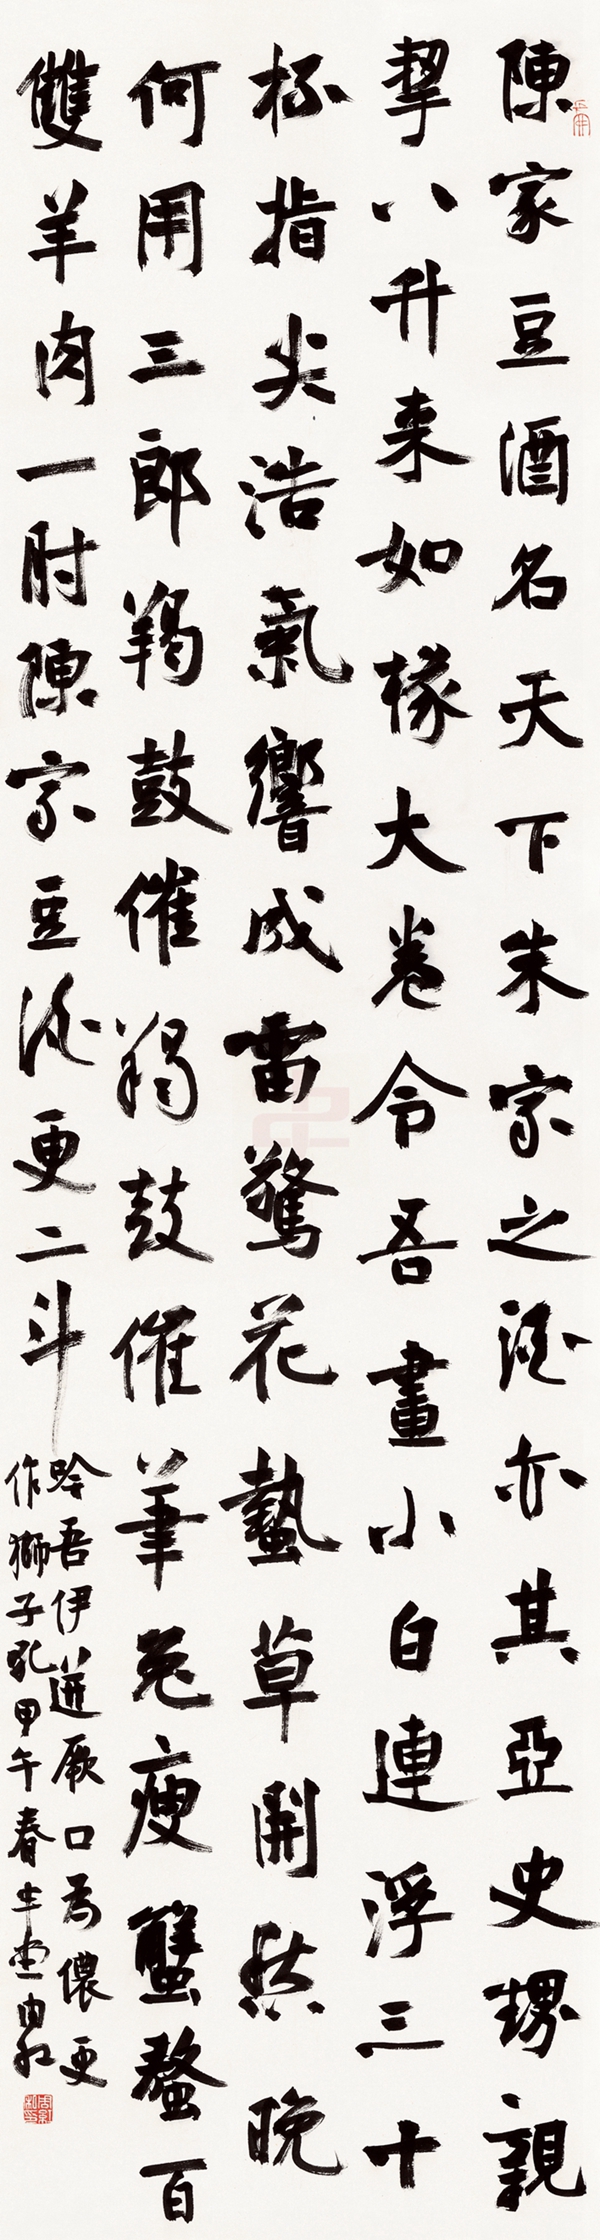 陳家豆酒名天下朱家之酒亦其亞史甥親
挈八升来如椽大卷令吾畫小白連浮三十
杯指尖浩氣響成雷驚花蟄草開愁晚
何用三郎羯鼓催羯鼓催筆兎瘦蟹螯百
雙羊肉一肘陳家豆酒更二斗
吟吾伊迸厥口為儂更
作獅子吼甲午春